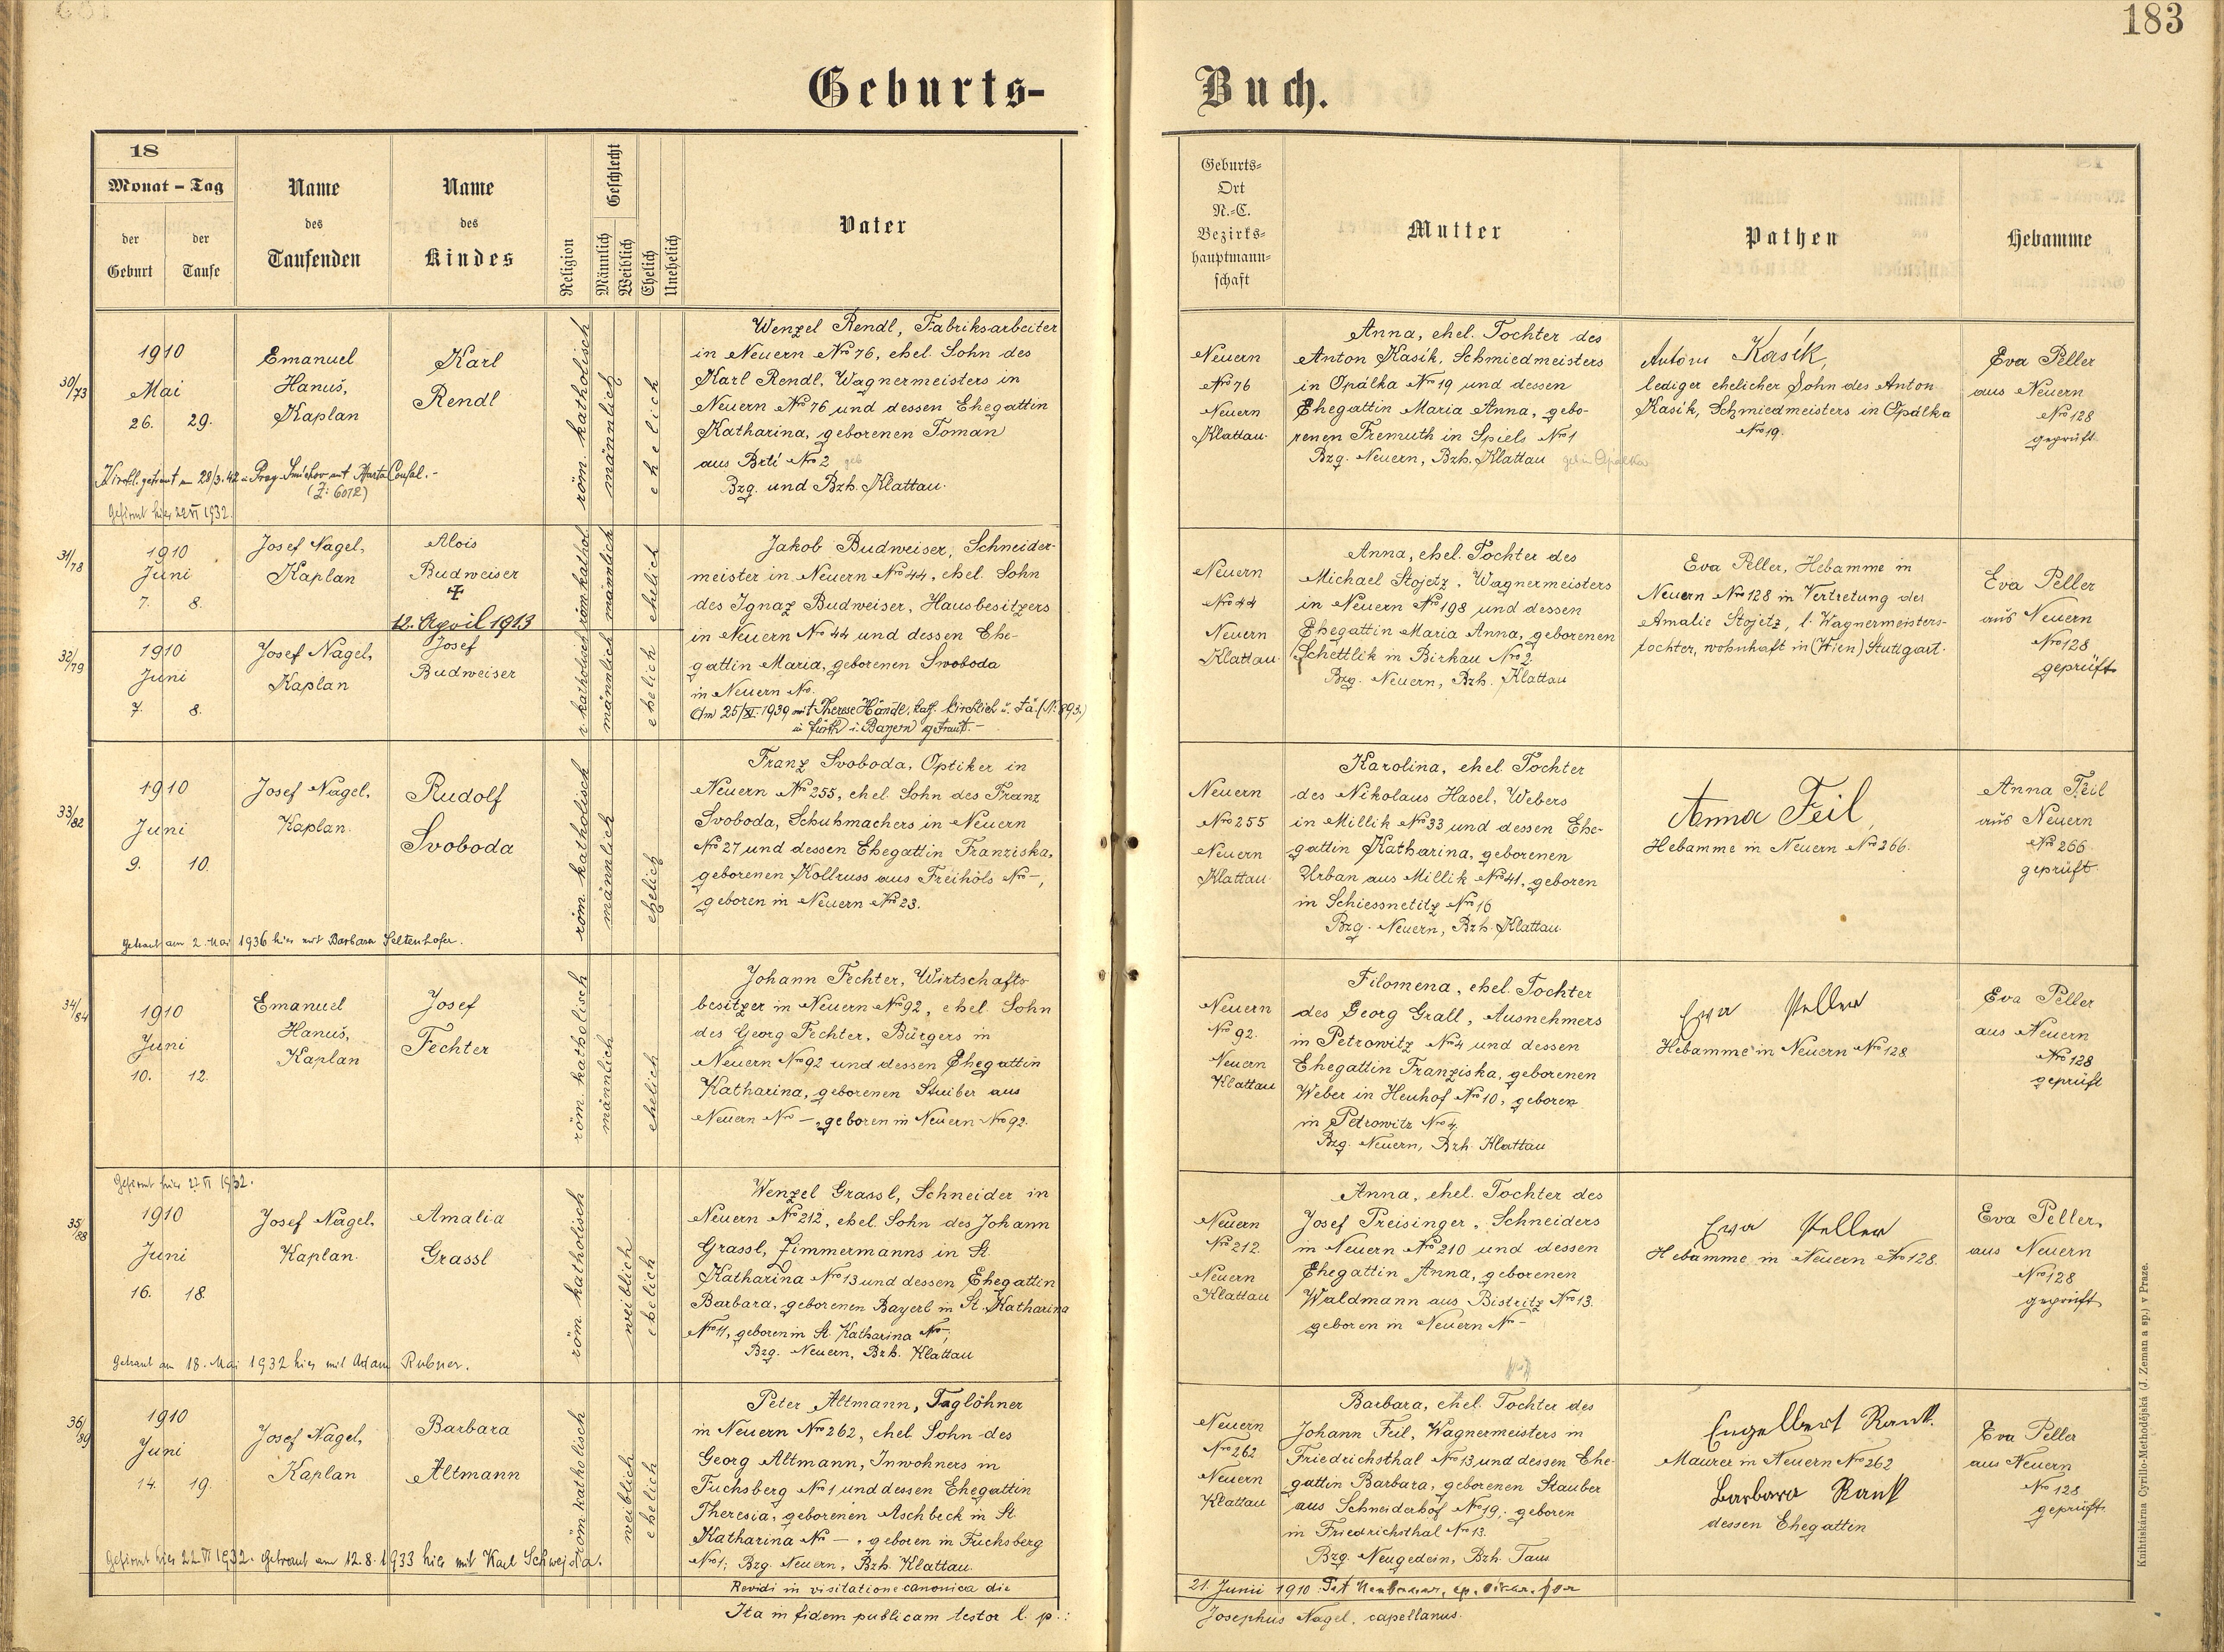 183
Geburts-Buch.
18
Monat - Tag
der Geburt
der Taufe
Name des Taufenden
Name des Kindes
Religion
Geschlecht
Männlich
Weiblich
Ehelich
Unehelich
Vater
Geburts-
Ort
N.-C.
Bezirks-
hauptmann-
schaft
Mutter
Pathen
Hebamme
30/73
1910
Mai
26. 29.
Emanuel
Hanuš,
Kaplan
Karl
Rendl
röm. katholisch
männlich
ehelich
Wenzel Rendl, Fabriksarbeiter
in Neuern Nro 76, ehel. Sohn des
Karl Rendl, Wagnermeisters in
Neuern Nro 76 und dessen Ehegattin
Katharina, geborenen Toman
aus Brti Nro 2 geb
Bzg. und Bzh. Klattau.
Kirchl. getraut am 28/3.42 in Prag-Smichov mit
(Z: 6012)
Gefirmt hier 22 VI 1932.
Neuern
Nro 76
Neuern
Klattau.
Anna, ehel. Tochter des
Anton Kasík, Schmiedmeisters
in Opálka Nro 19 und dessen
Ehegattin Maria Anna, gebo-
renen Fremuth in Spiels Nro 1
Bzg. Neuern, Bzh. Klattau
Antonn Kasík,
lediger ehelicher Sohn des Anton
Kasík, Schmiedmeisters in Opálka
Nro 19.
Eva Peller
aus Neuern
Nro 128
geprüft.
31/78
1910
Juni
7. 8.
Josef Nagel,
Kaplan
Alois
Budweiser
✝
12. April 1913
röm. kathol.
männlich
ehelich
Jakob Budweiser, Schneider-
meister in Neuern Nro 44, ehel. Sohn
des Ignaz Budweiser, Hausbesitzers
in Neuern Nro 44 und dessen Ehe-
gattin Maria, geborenen Swoboda
in Neuern No.
Am 25/XI. 1939 mit Therese Händl, kath. kirchlich
in Fürth i. Bayern getraut.-
Neuern
Nro 44
Neuern
Klattau.
Anna, ehel. Tochter des
Michael Stojetz, Wagnermeisters
in Neuern Nro 198 und dessen
Ehegattin Maria Anna, geborenen
Schettlik in Birhau Nro 2.
Bzg. Neuern, Bzh. Klattau
Eva Peller, Hebamme in
Neuern Nro 128 in Vertretung der
Amalie Stojetz, l. Wagnermeisters-
tochter, wohnhaft in (Wien) Stuttgart.
Eva Peller
aus Neuern
Nro 128
geprüft.
32/79
1910
Juni
7. 8.
Josef Nagel,
Kaplan
Josef
Budweiser
r. katholisch
männlich
ehelich
33/82
1910
Juni
9. 10.
Josef Nagel,
Kaplan.
Rudolf
Svoboda
röm. katholisch
männlich
ehelich
Franz Svoboda, Optiker in
Neuern Nro 255, ehel. Sohn des Franz
Svoboda, Schuhmachers in Neuern
Nro 27 und dessen Ehegattin Franziska,
geborenen Kollruss aus Freihöls Nro -,
geboren in Neuern Nro 23.
Getraut am 2. Mai 1936 hier mit Barbara Seltenhofer.
Neuern
Nro 255
Neuern
Klattau
Karolina, ehel. Tochter
des Nikolaus Hasel, Webers
in Millik Nro 33 und dessen Ehe-
gattin Katharina, geborenen
Urban aus Millik Nro 41, geboren
in Schiessnetitz Nro 16
Bzg. Neuern, Bzh. Klattau.
Anna Feil,
Hebamme in Neuern Nro 266.
Anna Feil
aus Neuern
Nro 266
geprüft.
34/84
1910
Juni
10. 12.
Emanuel
Hanuš,
Kaplan
Josef
Fechter
röm. katholisch
männlich
ehelich
Johann Fechter, Wirtschafts
besitzer in Neuern Nro 92, ehel. Sohn
des Georg Fechter, Bürgers in
Neuern Nro 92 und dessen Ehegattin
Katharina, geborenen Stuiber aus
Neuern Nro -, geboren in Neuern Nro 92.
Neuern
Nro 92.
Neuern
Klattau
Filomena, ehel. Tochter
des Georg Grall, Ausnehmers
in Petrowitz Nro 4 und dessen
Ehegattin Franziska, geborenen
Weber in Heuhof Nro 10, geboren
in Petrowitz Nro 4.
Bzg. Neuern, Bzh. Klattau
Ewa Peller
Hebamme in Neuern Nro 128
Eva Peller
aus Neuern
Nro 128
geprüft
35/88
Gefirmt hier 22 VI 1932.
1910
Juni
16. 18.
Josef Nagel,
Kaplan.
Amalia
Grassl
röm. katholisch
weiblich
ehelich
Wenzel Grassl, Schneider in
Neuern Nro 212, ehel. Sohn des Johann
Grassl, Zimmermanns in St.
Katharina Nro 13 und dessen Ehegattin
Barbara, geborenen Bayerl in St. Katharina
Nro 11, geboren in St. Katharina Nro -,
Bzg. Neuern, Bzh. Klattau
Getraut am 18. Mai 1932 hier mit Adam Rubner.
Neuern
Nro 212.
Neuern
Klattau
Anna, ehel. Tochter des
Josef Preisinger, Schneiders
in Neuern Nro 210 und dessen
Ehegattin Anna, geborenen
Waldmann aus Bistritz Nro 13.
geboren in Neuern Nro -
Ewa Peller
Hebamme in Neuern Nro 128.
Eva Peller,
aus Neuern
Nro 128
geprüft.
36/89
1910
Juni
14. 19.
Josef Nagel,
Kaplan
Barbara
Altmann
röm. katholisch
weiblich
ehelich
Peter Altmann, Taglöhner
in Neuern Nro 262, ehel. Sohn des
Georg Altmann, Inwohners in
Fuchsberg Nro 1 und dessen Ehegattin
Theresia, geborenen Aschbeck in St.
Katharina Nr -, geboren in Fuchsberg
Nro 1; Bzg. Neuern, Bzh. Klattau.
Gefirmt hier 22 VI 1932. Getraut am 12.8.1933 hier mit Karl Schwejda.
Neuern
Nro 262
Neuern
Klattau
Barbara, ehel. Tochter des
Johann Feil, Wagnermeisters in
Friedrichsthal Nro 13 und dessen Ehe-
gattin Barbara, geborenen Stauber
aus Schneiderhof Nro 19; geboren
in Friedrichsthal Nro 13.
Bzg. Neugedein, Bzh. Taus
Engelbert Rank.
Maurer in Neuern Nro 262
Barbara Rank
dessen Ehegattin
Eva Peller
aus Neuern
No 128
geprüft.
Revidi in visitatione canonica die
21. Junii 1910:
Ita in fidem publicam testor l. p.:
Josephus Nagel, capellanus.
Knihtiskárna Cyrillo-Methodějská (J. Zeman a sp.) v Praze.